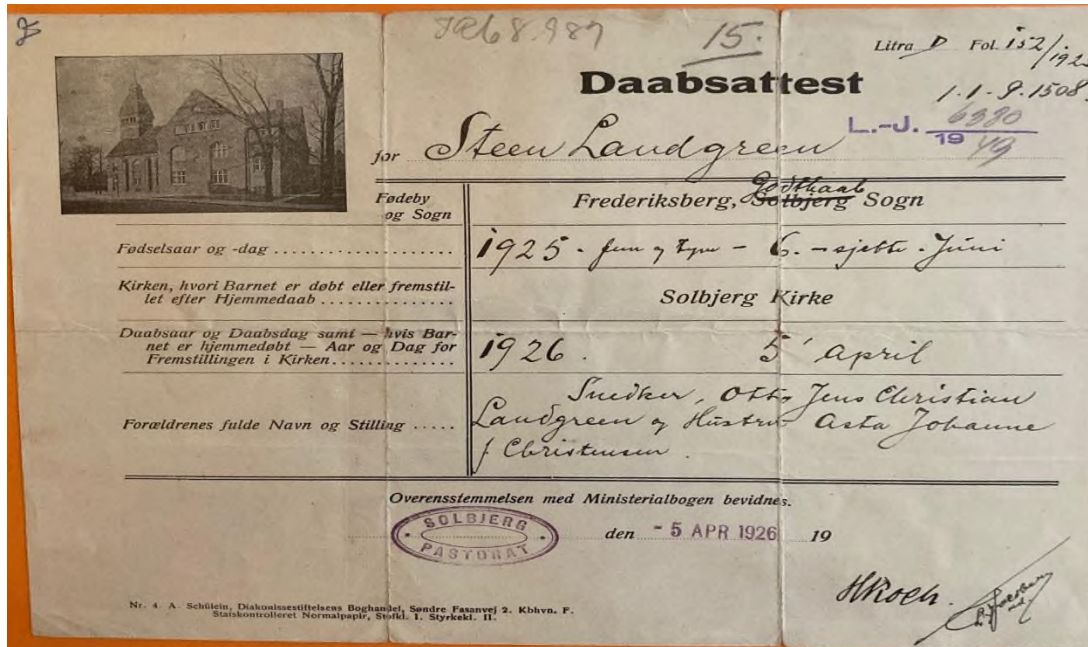 15.
Litra D Fol. 152/192
Daabsattest
1.1-9.1508.
L.-J. 6380
19 49
for Steen Landgreen
Fødeby
og Sogn
Godthaab
Frederiksberg, Solbjerg Sogn
Fødselsaar og -dag
1925 - fem og tyve - 6. - sjette - Juni
Kirken, hvori Barnet er døbt eller fremstil-
let efter Hjemmedaab
Solbjerg Kirke
Daabsaar og Daabsdag samt — hvis Bar-
net er hjemmedøbt — Aar og Dag for
Fremstillingen i Kirken
1926. 5' April
Forældrenes fulde Navn og Stilling
Snedker, Otto Jens Christian
Landgreen og Hustru Asta Johanne
f Christensen.
Overensstemmelsen med Ministerialbogen bevidnes.
SOLBJERG
PASTORAT
den - 5 APR 1926 19
HKoch.
Nr. 4. A. Schülein, Diakonissestiftelsens Boghandel, Søndre Fasanvej 2. Kbhvn. F.
Statskontrolleret Normalpapir, Stofkl. I. Styrkekl. II.